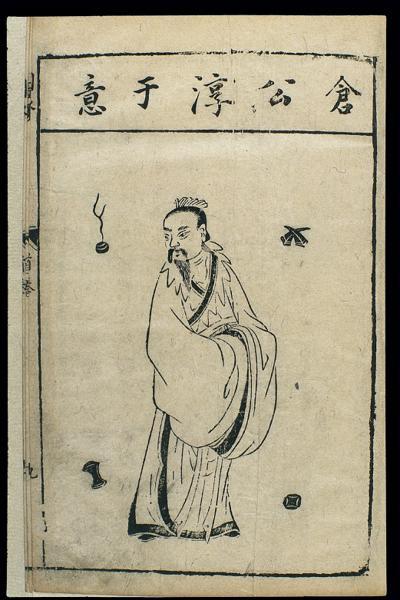 倉公淳于意
首卷